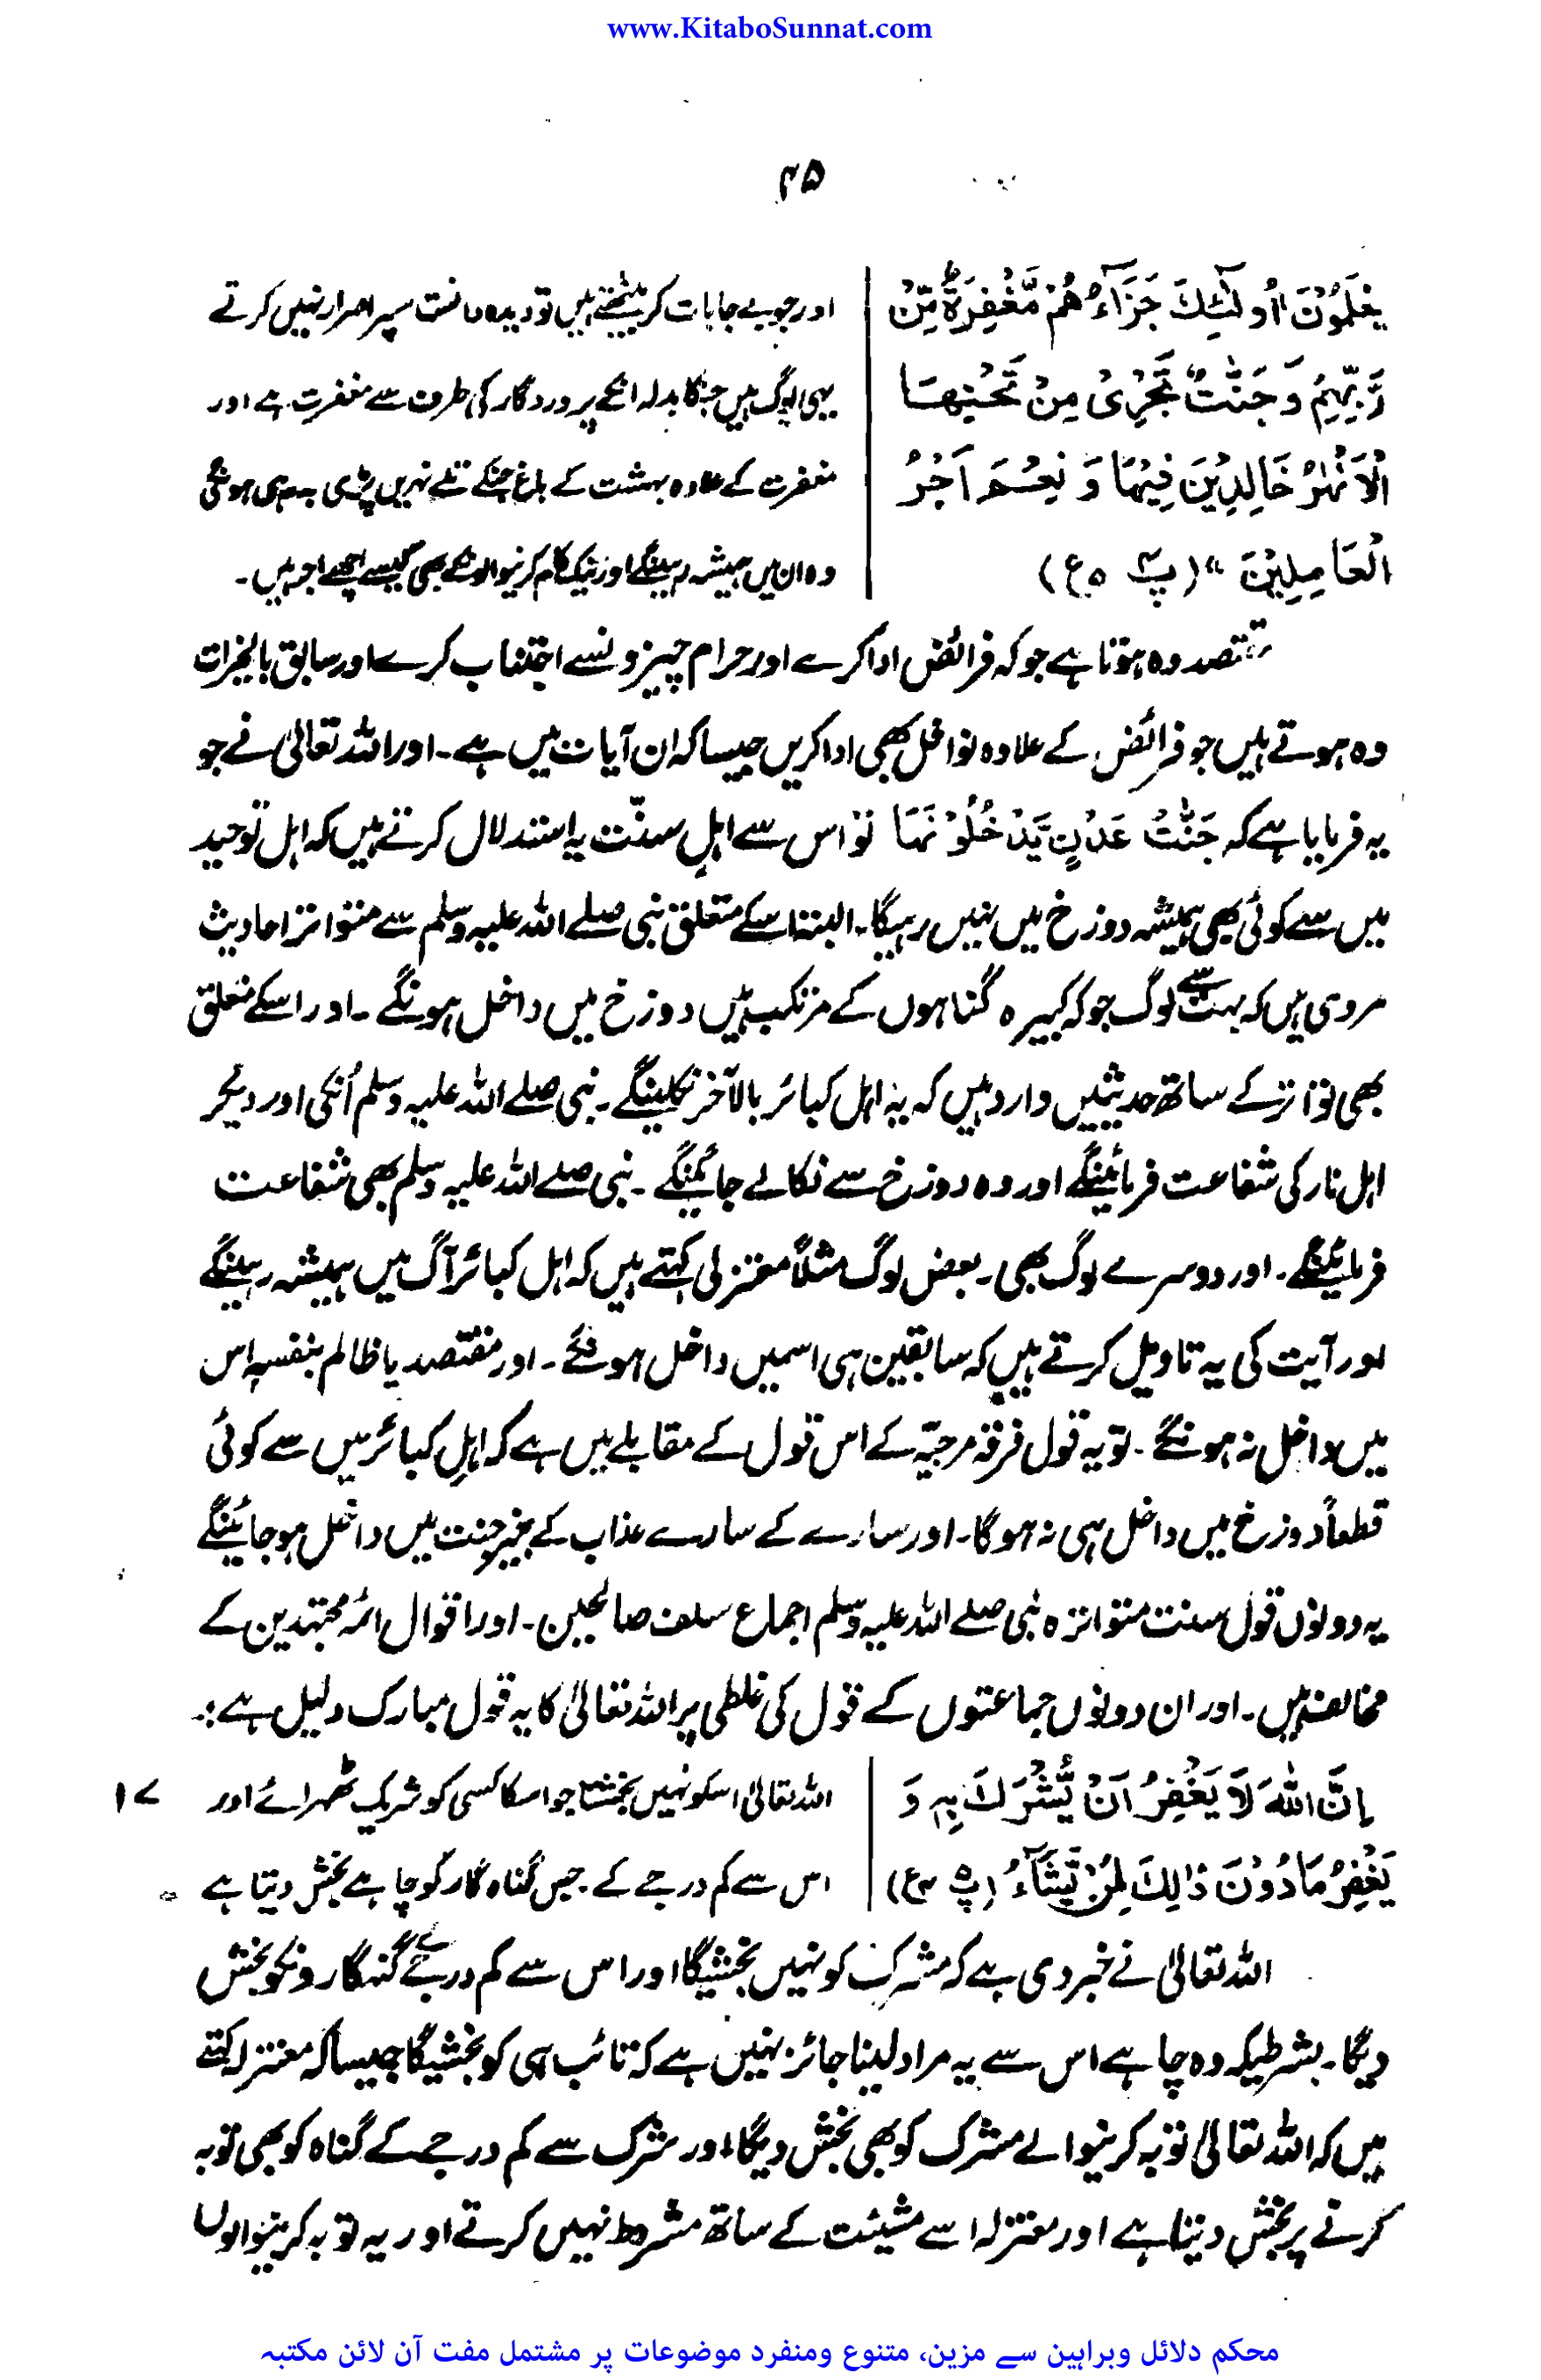 www.KitaboSunnat.com
۴۵
يَعْلَمُوْنَ اُولٰٓئِكَ جَزَآءُهُمْ مَّغْفِرَةٌ مِّنْ
رَّبِّهِمْ وَجَنّٰتٌ تَجْرِىْ مِنْ تَحْتِهَا
الْاَنْهٰرُ خَالِدِيْنَ فِيْهَا وَ نِعْمَ اَجْرُ
الْعَامِلِيْنَ " (پ۴ ع۵)
اور جو بے جا بات کر بیٹھتے ہیں تو دیدہ دانستہ اسپر اصرار نہیں کرتے
یہی لوگ ہیں جنکا بدلہ انکے پروردگار کی طرف سے مغفرت ہے اور
مغفرت کے علاوہ بہشت کے باغ جنکے تلے نہریں پڑی بہ رہی ہونگی
وہ ان میں ہمیشہ رہینگے اور نیک کام کرنیوالونکے بھی کیسے اچھے اجر ہیں۔
مقتصد وہ ہوتا ہے جو کہ فرائض ادا کرے اور حرام چیزونسے اجتناب کرے اور سابق بالخیرات
وہ ہوتے ہیں جو فرائض کے علاوہ نوافل بھی ادا کریں جیسا کہ ان آیات میں ہے۔ اور اللہ تعالیٰ نے جو
یہ فرمایا ہے کہ جَنّٰتُ عَدْنٍ يَّدْخُلُوْنَهَا تو اس سے اہلِ سنّت یہ استدلال کرتے ہیں کہ اہل توحید
میں سے کوئی بھی ہمیشہ دوزخ میں نہیں رہیگا۔ البتہ اسکے متعلق نبی صلے اللہ علیہ وسلم سے متواتر احادیث
مروی ہیں کہ بہت سے لوگ جو کہ کبیرہ گناہوں کے مرتکب ہیں دوزخ میں داخل ہونگے۔ اور اسکے متعلق
بھی تواتر کے ساتھ حدیثیں وارد ہیں کہ یہ اہل کبائر بالآخر نکلینگے۔ نبی صلے اللہ علیہ وسلم اُنکی اور دیگر
اہل نار کی شفاعت فرمائینگے اور وہ دوزخ سے نکالے جائینگے۔ نبی صلے اللہ علیہ وسلم بھی شفاعت
فرمائینگے۔ اور دوسرے لوگ بھی۔ بعض لوگ مثلاً معتزلی کہتے ہیں کہ اہل کبائر آگ میں ہمیشہ رہینگے
اور آیت کی یہ تاویل کرتے ہیں کہ سابقین ہی اسمیں داخل ہونگے۔ اور مقتصد یا ظالم بنفسہ اس
میں داخل نہ ہونگے۔ تو یہ قول فرقہ مرجیّہ کے اس قول کے مقابلے میں ہے کہ اہلِ کبائر میں سے کوئی
قطعاً دوزخ میں داخل ہی نہ ہوگا۔ اور سارے کے سارے عذاب کے بغیر جنت میں داخل ہو جائینگے
یہ دونوں قول سنت متواترہ نبی صلے اللہ علیہ وسلم اجماع سلف صالحین۔ اور اقوال ائمہ مجتہدین کے
مخالف ہیں۔ اور ان دونوں جماعتوں کے قول کی غلطی پر اللہ تعالیٰ کا یہ قول مبارک دلیل ہے:۔
اِنَّ اللّٰهَ لَا يَغْفِرُ اَنْ يُّشْرَكَ بِهٖ وَ
يَغْفِرُ مَا دُوْنَ ذٰلِكَ لِمَنْ يَّشَآءُ (پ۵ ع۴)
اللہ تعالیٰ اسکو نہیں بخشتا جو اسکا کسی کو شریک ٹھہرائے اور
اس سے کم درجے کے جس گناہ گار کو چاہے بخش دیتا ہے
۱۷
اللہ تعالیٰ نے خبر دی ہے کہ مشرک کو نہیں بخشیگا اور اس سے کم درجے کے گنہگارونکو بخش
دیگا۔ بشرطیکہ وہ چاہے اس سے یہ مراد لینا جائز نہیں ہے کہ تائب ہی کو بخشیگا جیسا کہ معتزلہ کہتے
ہیں کہ اللہ تعالیٰ توبہ کرنیوالے مشرک کو بھی بخش دیگا اور شرک سے کم درجے کے گناہ کو بھی توبہ
کرنے پر بخش دیتا ہے اور معتزلہ اسے مشیئت کے ساتھ مشروط نہیں کرتے اور یہ توبہ کرنیوالوں
محکم دلائل وبراہین سے مزین، متنوع ومنفرد موضوعات پر مشتمل مفت آن لائن مکتبہ